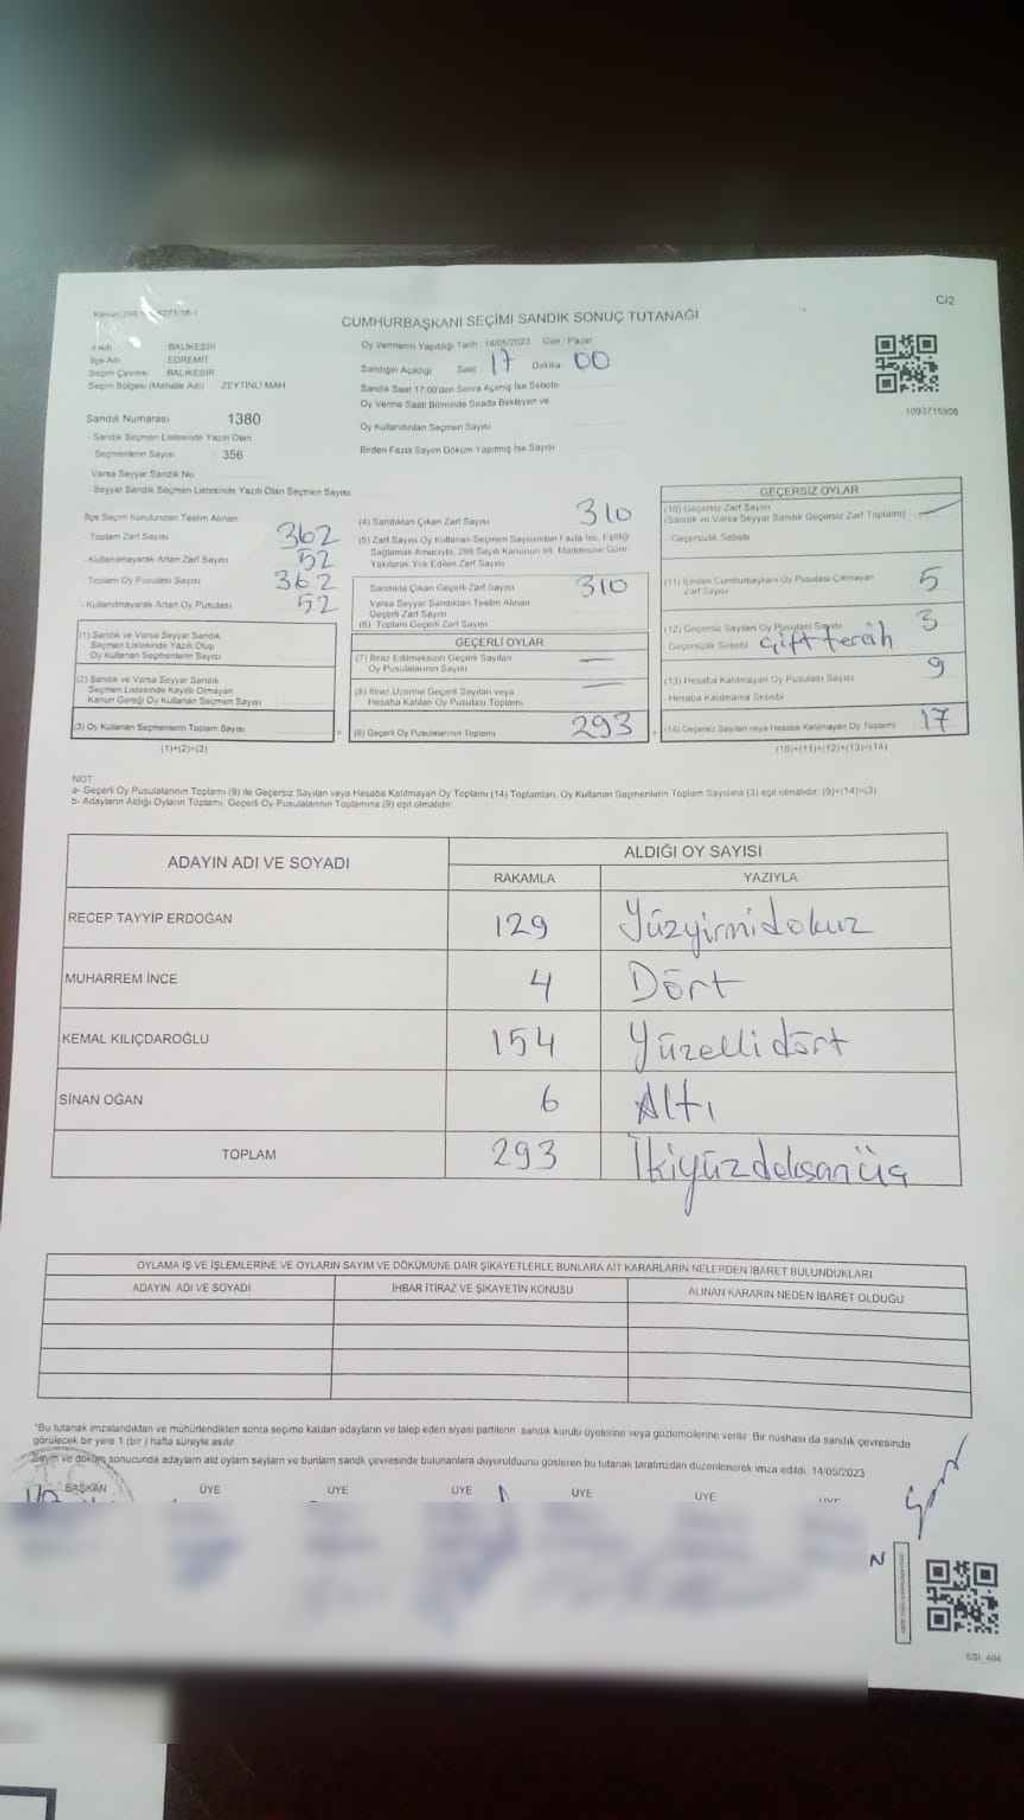 C/2
CUMHURBAŞKANI SEÇİMİ SANDIK SONUÇ TUTANAĞI
İl Adı BALIKESİR
İlçe Adı EDREMİT
Seçim Çevresi BALIKESİR
Seçim Bölgesi (Mahalle Adı) ZEYTİNLİ MAH
Sandık Numarası 1380
- Sandık Seçmen Listesinde Yazılı Olan
Seçmenlerin Sayısı 356
Varsa Seyyar Sandık No
- Seyyar Sandık Seçmen Listesinde Yazılı Olan Seçmen Sayısı
Oy Vermenin Yapıldığı Tarih : 14/05/2023 Gün : Pazar
Sandığın Açıldığı Saat 17 Dakika 00
Sandık Saat 17:00'den Sonra Açılmış İse Sebebi
Oy Verme Saati Bitiminde Sırada Bekleyen ve
Oy Kullandırılan Seçmen Sayısı
Birden Fazla Sayım Döküm Yapılmış İse Sayısı
1093716906
İlçe Seçim Kurulundan Teslim Alınan
- Toplam Zarf Sayısı 362
- Kullanılmayarak Artan Zarf Sayısı 52
Toplam Oy Pusulası Sayısı 362
- Kullanılmayarak Artan Oy Pusulası 52
(1) Sandık ve Varsa Seyyar Sandık
Seçmen Listesinde Yazılı Olup
Oy Kullanan Seçmenlerin Sayısı
(2) Sandık ve Varsa Seyyar Sandık
Seçmen Listesinde Kayıtlı Olmayan
Kanun Gereği Oy Kullanan Seçmen Sayısı
(3) Oy Kullanan Seçmenlerin Toplam Sayısı
(1)+(2)=(3)
(4) Sandıktan Çıkan Zarf Sayısı 310
(5) Zarf Sayısı Oy Kullanan Seçmen Sayısından Fazla İse, Eşitliği
Sağlamak Amacıyla, 298 Sayılı Kanunun 98. Maddesine Göre
Yakılarak Yok Edilen Zarf Sayısı
Sandıkta Çıkan Geçerli Zarf Sayısı 310
Varsa Seyyar Sandıktan Teslim Alınan
Geçerli Zarf Sayısı
(6) Toplam Geçerli Zarf Sayısı
GEÇERLİ OYLAR
(7) İtiraz Edilmeksizin Geçerli Sayılan
Oy Pusulalarının Sayısı
(8) İtiraz Üzerine Geçerli Sayılan veya
Hesaba Katılan Oy Pusulası Toplamı
(9) Geçerli Oy Pusulalarının Toplamı 293
GEÇERSİZ OYLAR
(10) Geçersiz Zarf Sayısı
(Sandık ve Varsa Seyyar Sandık Geçersiz Zarf Toplamı)
Geçersizlik Sebebi
(11) İçinden Cumhurbaşkanı Oy Pusulası Çıkmayan 5
Zarf Sayısı
(12) Geçersiz Sayılan Oy Pusulası Sayısı 3
Geçersizlik Sebebi Çift tercih
(13) Hesaba Katılmayan Oy Pusulası Sayısı 9
Hesaba Katılmama Sebebi
(14) Geçersiz Sayılan veya Hesaba Katılmayan Oy Toplamı 17
(10)+(11)+(12)+(13)=(14)
NOT
a- Geçerli Oy Pusulalarının Toplamı (9) ile Geçersiz Sayılan veya Hesaba Katılmayan Oy Toplamı (14) Toplamları, Oy Kullanan Seçmenlerin Toplam Sayısına (3) eşit olmalıdır. (9)+(14)=(3)
b- Adayların Aldığı Oyların Toplamı, Geçerli Oy Pusulalarının Toplamına (9) eşit olmalıdır.
ADAYIN ADI VE SOYADI
ALDIĞI OY SAYISI
RAKAMLA YAZIYLA
RECEP TAYYİP ERDOĞAN 129 Yüzyirmidokuz
MUHARREM İNCE 4 Dört
KEMAL KILIÇDAROĞLU 154 Yüzellidört
SİNAN OĞAN 6 Altı
TOPLAM 293 İkiyüzdoksanüç
OYLAMA İŞ VE İŞLEMLERİNE VE OYLARIN SAYIM VE DÖKÜMÜNE DAİR ŞİKAYETLERLE BUNLARA AİT KARARLARIN NELERDEN İBARET BULUNDUKLARI
ADAYIN ADI VE SOYADI İHBAR İTİRAZ VE ŞİKAYETİN KONUSU ALINAN KARARIN NEDEN İBARET OLDUĞU
"Bu tutanak imzalandıktan ve mühürlendikten sonra seçime katılan adayların ve talep eden siyasi partilerin sandık kurulu üyelerine veya gözlemcilerine verilir. Bir nüshası da sandık çevresinde
görülecek bir yere 1 (bir) hafta süreyle asılır
Sayım ve döküm sonucunda adayların ald oyların sayıların ve bunların sandık çevresinde bulunanlara duyurulduunu gösteren bu tutanak tarafmızdan düzenlenerek imza edildi. 14/05/2023
BAŞKAN ÜYE ÜYE ÜYE ÜYE ÜYE